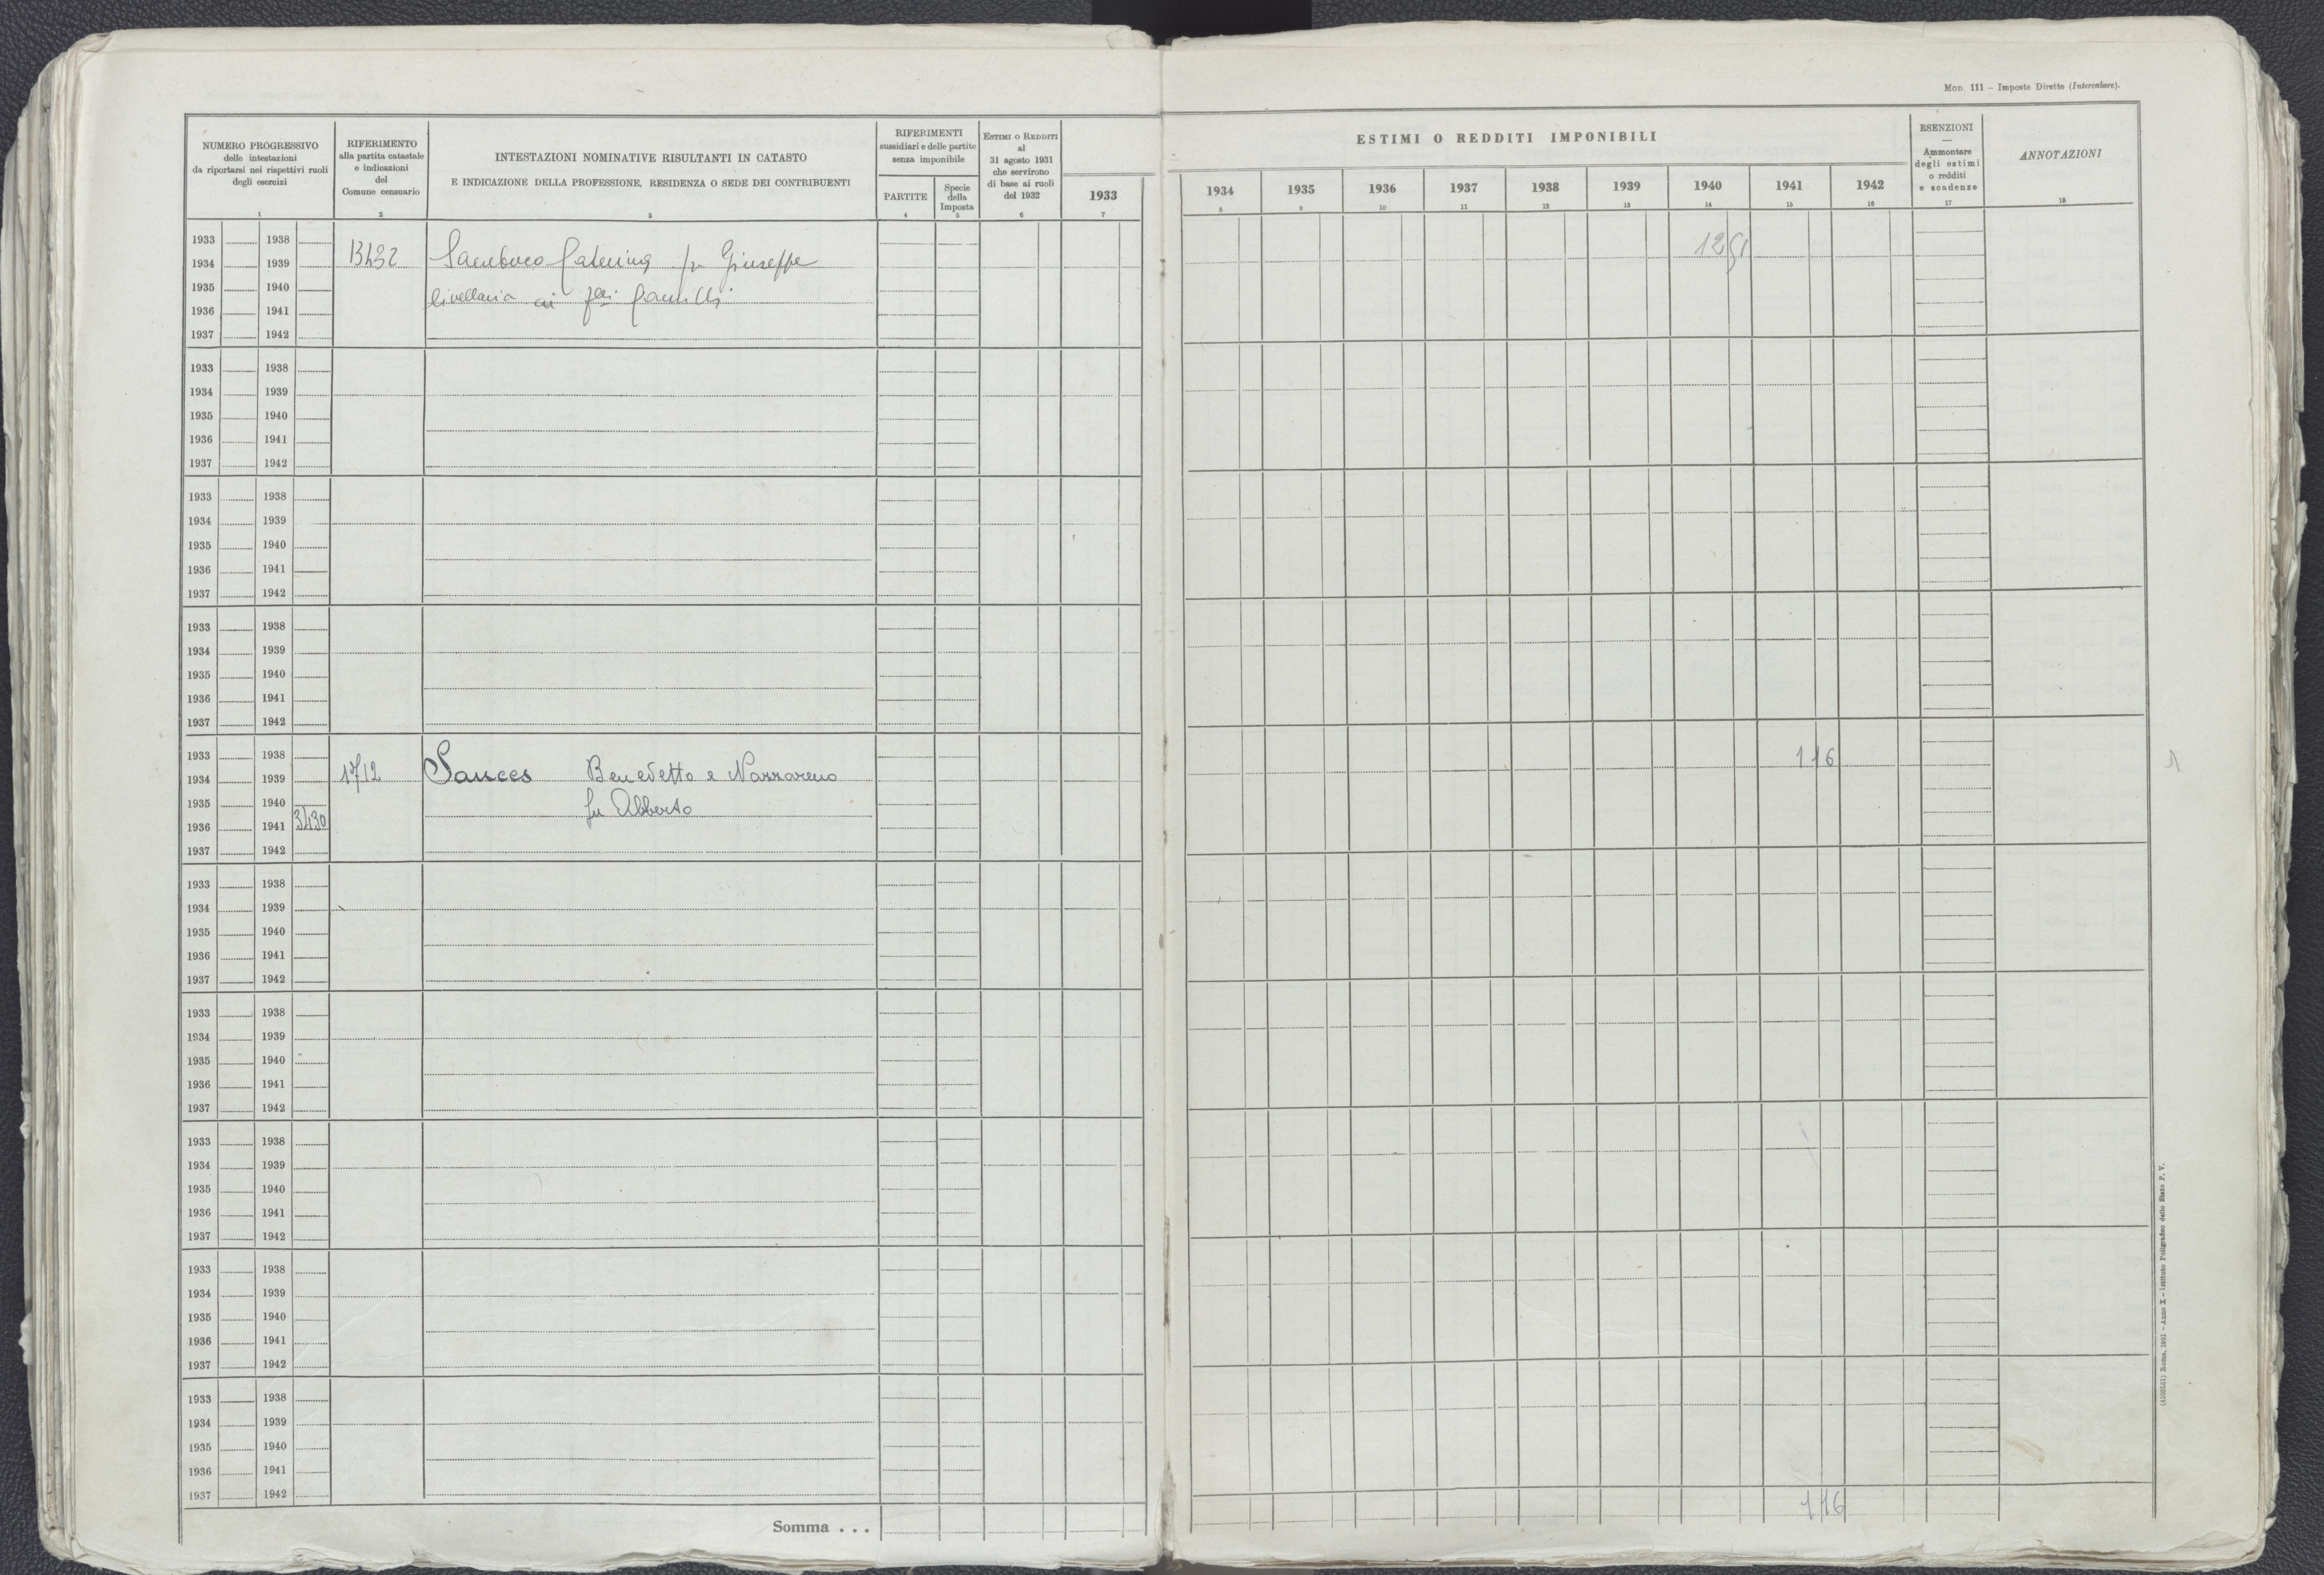 MOD. 111 – Imposte Dirette (Intercalare).
NUMERO PROGRESSIVO
delle intestazioni
da riportarsi nei rispettivi ruoli
degli esercizi
1
RIFERIMENTO
alla partita catastale
e indicazioni
del
Comune censuario
2
INTESTAZIONI NOMINATIVE RISULTANTI IN CATASTO
E INDICAZIONE DELLA PROFESSIONE, RESIDENZA O SEDE DEI CONTRIBUENTI
3
RIFERIMENTI
sussidiari e delle partite
senza imponibile
PARTITE
4
Specie
della
Imposta
5
ESTIMI O REDDITI
al
31 agosto 1931
che servirono
di base ai ruoli
del 1932
6
1933
7
ESTIMI O REDDITI IMPONIBILI
1934 1935 1936 1937 1938 1939 1940 1941 1942
8 9 10 11 12 13 14 15 16
ESENZIONI
—
Ammontare
degli estimi
o redditi
e scadenze
17
ANNOTAZIONI
18
1933 1938
1934 1939 Giuseppe
1935 1940 livellaria ai
1936 1941
1937 1942
1933 1938
1934 1939
1935 1940
1936 1941
1937 1942
1933 1938
1934 1939
1935 1940
1936 1941
1937 1942
1933 1938
1934 1939
1935 1940
1936 1941
1937 1942
1933 1938 116
1934 1939 1712 Sances Benedetto e Nazzareno
1935 1940 fu Alberto
1936 1941 3430
1937 1942
1933 1938
1934 1939
1935 1940
1936 1941
1937 1942
1933 1938
1934 1939
1935 1940
1936 1941
1937 1942
1933 1938
1934 1939
1935 1940
1936 1941
1937 1942
1933 1938
1934 1939
1935 1940
1936 1941
1937 1942
1933 1938
1934 1939
1935 1940
1936 1941
1937 1942
Somma . . . 116
Roma, 1931 – Anno X – Istituto Poligrafico dello Stato P. V.